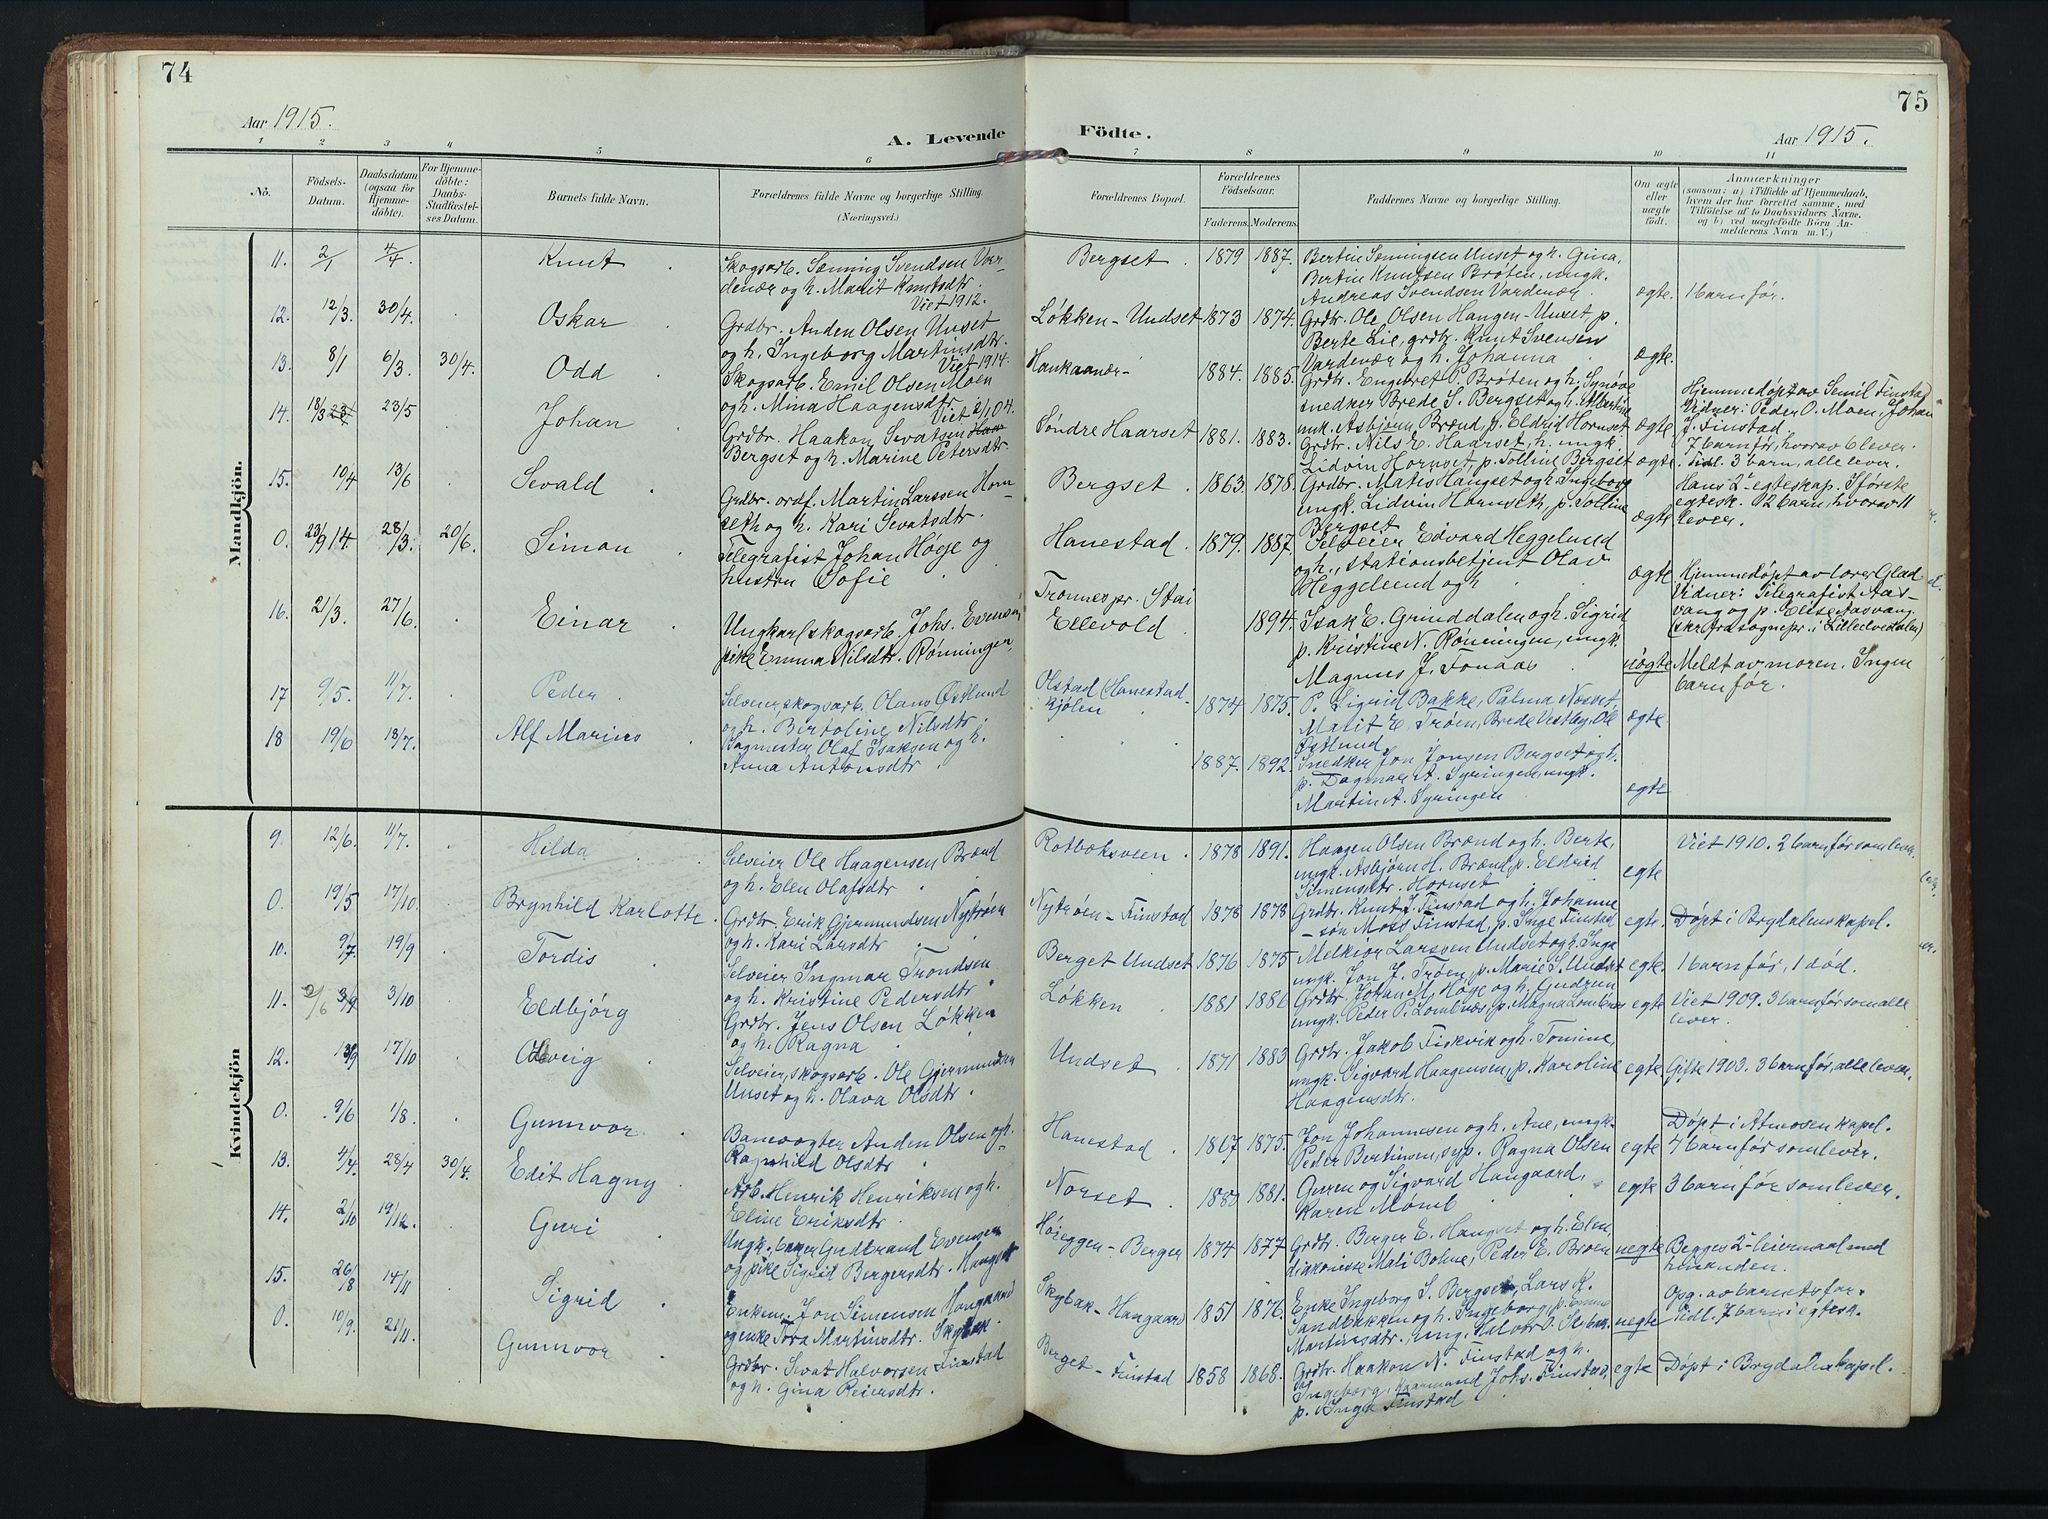 74
Aar 1915.
A. Levende
1 2 3 4 5 6
No. Födsels-Datum. Daabsdatum (ogsaa for Hjemmedöbte). For Hjemmedöbte: Daabs-Stadfæstelses Datum. Barnets fulde Navn. Forældrenes fulde Navne og borgerlige Stilling. (Næringsvei.)
Mandkjön.
11. 2/1 4/4 Knut Skogsarb. Sæming Svendsen Var-
denær og h. Marit Knutsdtr.
Viet 1912.
12. 12/3. 30/4. Oskar Grdbr. Anden Olsen Unset
og h. Ingeborg Martinsdtr.
Viet 1914.
13. 8/1 6/3. 30/4. Odd Skogsarb. Emil Olsen Moen
og h. Mina Haagensdtr.
14. 18/3 23/5 Johan Grdbr. Haakon Sevatsen
Bergset og h. Marine Petersdtr.
15. 10/4 13/6 Sevald Grdbr. ordf. Martin Larssen Horn-
seth og h. Kari Sevatsdtr.
0. 23/9 14. 28/3. 20/6. Simon Telegrafist Johan Høye og
hustru Sofie
16. 21/3. 27/6. Einar Ungkarl skogsarb. Johs. Evensen
pike Emma Nilsdtr. Rønningen,
17 9/5. 11/7. Peder Selveier skogsarb. Olaus Østlund
og h. Bertoline Nilsdtr.
18 19/6 18/7. Alf Marius Bagmester Olaf Isaksen og h.
Anna Antonsdtr
Kvindekjön
9. 12/6. 11/7. Hilda Selveier Ole Haagensen Brænd
og h. Elen Olafsdtr
0. 19/5 17/10. Brynhild Karlotte Grdbr. Erik Gjermundsen Nytrøen
og h. Kari Larsdtr
10. 9/7 19/9 Tordis Selveier Ingmar Trondsen
og h. Kristine Pedersdtr
11. 3/10 Eldbjörg Grdbr. Jens Olsen Løkken
og h. Ragna
12. 17/10 Selveier, skogsarb. Ole Gjermundsen
Unset og h. Olava Olsdtr
0. 9/6 1/8. Gunnvor Banevogter Anden Olsen og h.
Ragnhild Olsdtr
13. 4/4. 28/4 30/4. Edit Hagny Arb. Henrik Henriksen og h.
Eline Eriksdtr
14. 2/10 19/12. Guri Ungk. Gudbrand Evensen
og pike Sigrid Bergersdtr. Hangset
15. 26/8 14/11 Sigrid Enkem. Jon Simensen Haugaard
og enke Tora Martinsdtr. Skybak.
0. 10/9. 21/11. Gunnvor Grdbr. Sevat Halvorsen Finstad
og h. Gina Reiersdtr.
75
Födte.
Aar 1915.
7 8 9 10 11
Forældrenes Bopæl. Forældrenes Födselsaar. Faderens. Moderens. Faddernes Navne og borgerlige Stilling. Om ægte eller uægte födt. Anmærkninger (saasom: a) i Tilfælde af Hjemmedaab, hvem der har forrettet samme, med Tilföielse af to Daabsvidners Navne, og b) ved uægtefödte Börn Anmelderens Navn m. V.)
Bergset 1879 1887. Bertin Sæmingsen Unset og h. Gina,
Bertin Knutsen Brøten, ungk.
Andreas Svendsen Vardenær ægte. 1 barn før.
Løkken-Undset 1873 1874. Grdbr. Ole Olsen Hangen-Unset p.
Berte Lie, grdbr. Knut Svensen
Vardenær og h. Johanna ægte.
Haukaanær 1884. 1885. Grdbr. Engebret P. Brøten og h. Synøve
snedker Brede S. Bergset og h. Martine
ungk. Asbjørn Brænd, p. Eldrid Hornset ægte Hjemmedøpt av Semil Finstad
Vidner: Peder O. Moen, Johan
J. Finstad.
7 barn før, hvorav 6 lever.
Søndre Haarset 1881. 1883. Grdbr. Nils E. Haarset, h. ungk.
Lidvin Hornset, p. Tolline Bergset ægte Tidl. 3 barn, alle lever.
Bergset 1863. 1878. Grdbr. Matis Hangset og h. Ingeborg
ungk. Lidvin Hornseth, p. Tolline
Bergset ægte Hans 2det egteskap. I første
egtesk. 12 barn, hvorav 11
lever.
Hanestad 1879. 1887. Selveier Edvard Heggelund
og h., stationsbetjent Olav
Heggelund og h ægte Hjemmedøpt av lærer Glad
Vidner: Telegrafist Aas-
vang og p. Elise Aasvang.
(skr fra sognepr. i Lilleelvedalen)
Trønnes pr. Stai
Ellevold 1894. Isak E. Grinddalen og h. Sigrid
p. Kristine N. Rønningen, ungk.
Magnus J. Fonaas uægte Meldt av moren. Ingen
barn før.
Olstad (Hanestad
Kjölen 1874 1875. P. Sigrid Bakke, Palma Norset,
Marit E. Trøen, Brede Vestby, Ole
Østlund ægte
1887. 1892. Snedker Jon Jonsen Bergset og h.
p. Dagmar A. Syringen, ungk.
Martin A. Syringen ægte
Rotboksveen 1878 1891. Haagen Olsen Brænd og h. Berte,
ungk. Asbjørn H. Brænd, p. Eldrid
Simensdtr. Hornset egte Viet 1910. 2 barn før som lever.
Nytrøen-Finstad 1878 1878 Grdbr. Knut J. Finstad og h. Johanne
søn Moss Finstad, p. Inga Finstad egte. Døpt i Brydalens kapel.
Berget Undset 1876 1875 Melkior Larssen Undset og h. Inga
ungk. Jon J. Trøen, p. Marie S. Undset egte. 1 barn før, 1 død.
Løkken 1881 1886 Grdbr. Johan M. Høye og h. Gudrun
ungk. Peder P. Lombnæs, p. Magna Lombnæs egte Viet 1909. 3 barn før som alle
lever.
Undset 1871 1883 Grdbr. Jakob Fiskvik og h. Tomine,
ungk. Sigvard Haagensen, p. Karoline
Haagensdtr. egte Gifte 1903. 3 barn før, alle lever.
Hanestad 1867 1875. Jon Johannesen og h. Ane, ungk.
Peder Bertinsen, syp. Ragna Olsen egte Døpt i Atneosen kapel.
4 barn før som lever.
Norset 1881. Guren og Sigvard Haugaard,
Karen egte 3 barn før som lever.
Høieggen-Berger 1874 1877 Grdbr. Berger E. Hangset og h. Elen,
diakonisse Mali Bohne, Peder E. Broen uegte Begges 2det leiermaal med
hinanden.
Skybak-Haugaard 1851 1876. Enke Ingeborg S. Bergset, Lars K.
Sandbakken og h. Ingeborg, p. Emma
Martinsdtr. ung. Halvor O. Skybak. uegte Opg. av barnets far.
tidl. 7 barn i egtesk.
Berget-Finstad 1858 1868. Grdbr. Haakon N. Finstad og h.
Ingeborg, Kaarmand Johs. Finstad,
p. Inga Finstad egte Døpt i Brydalens kapel.